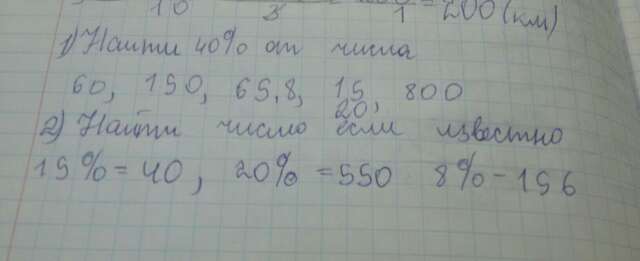 10 3 1 = 200 (км)
1) Найти 40% от числа
60, 150, 65,8, 15/20, 800
2) Найти число если известно
15% = 40, 20% = 550 8% - 156